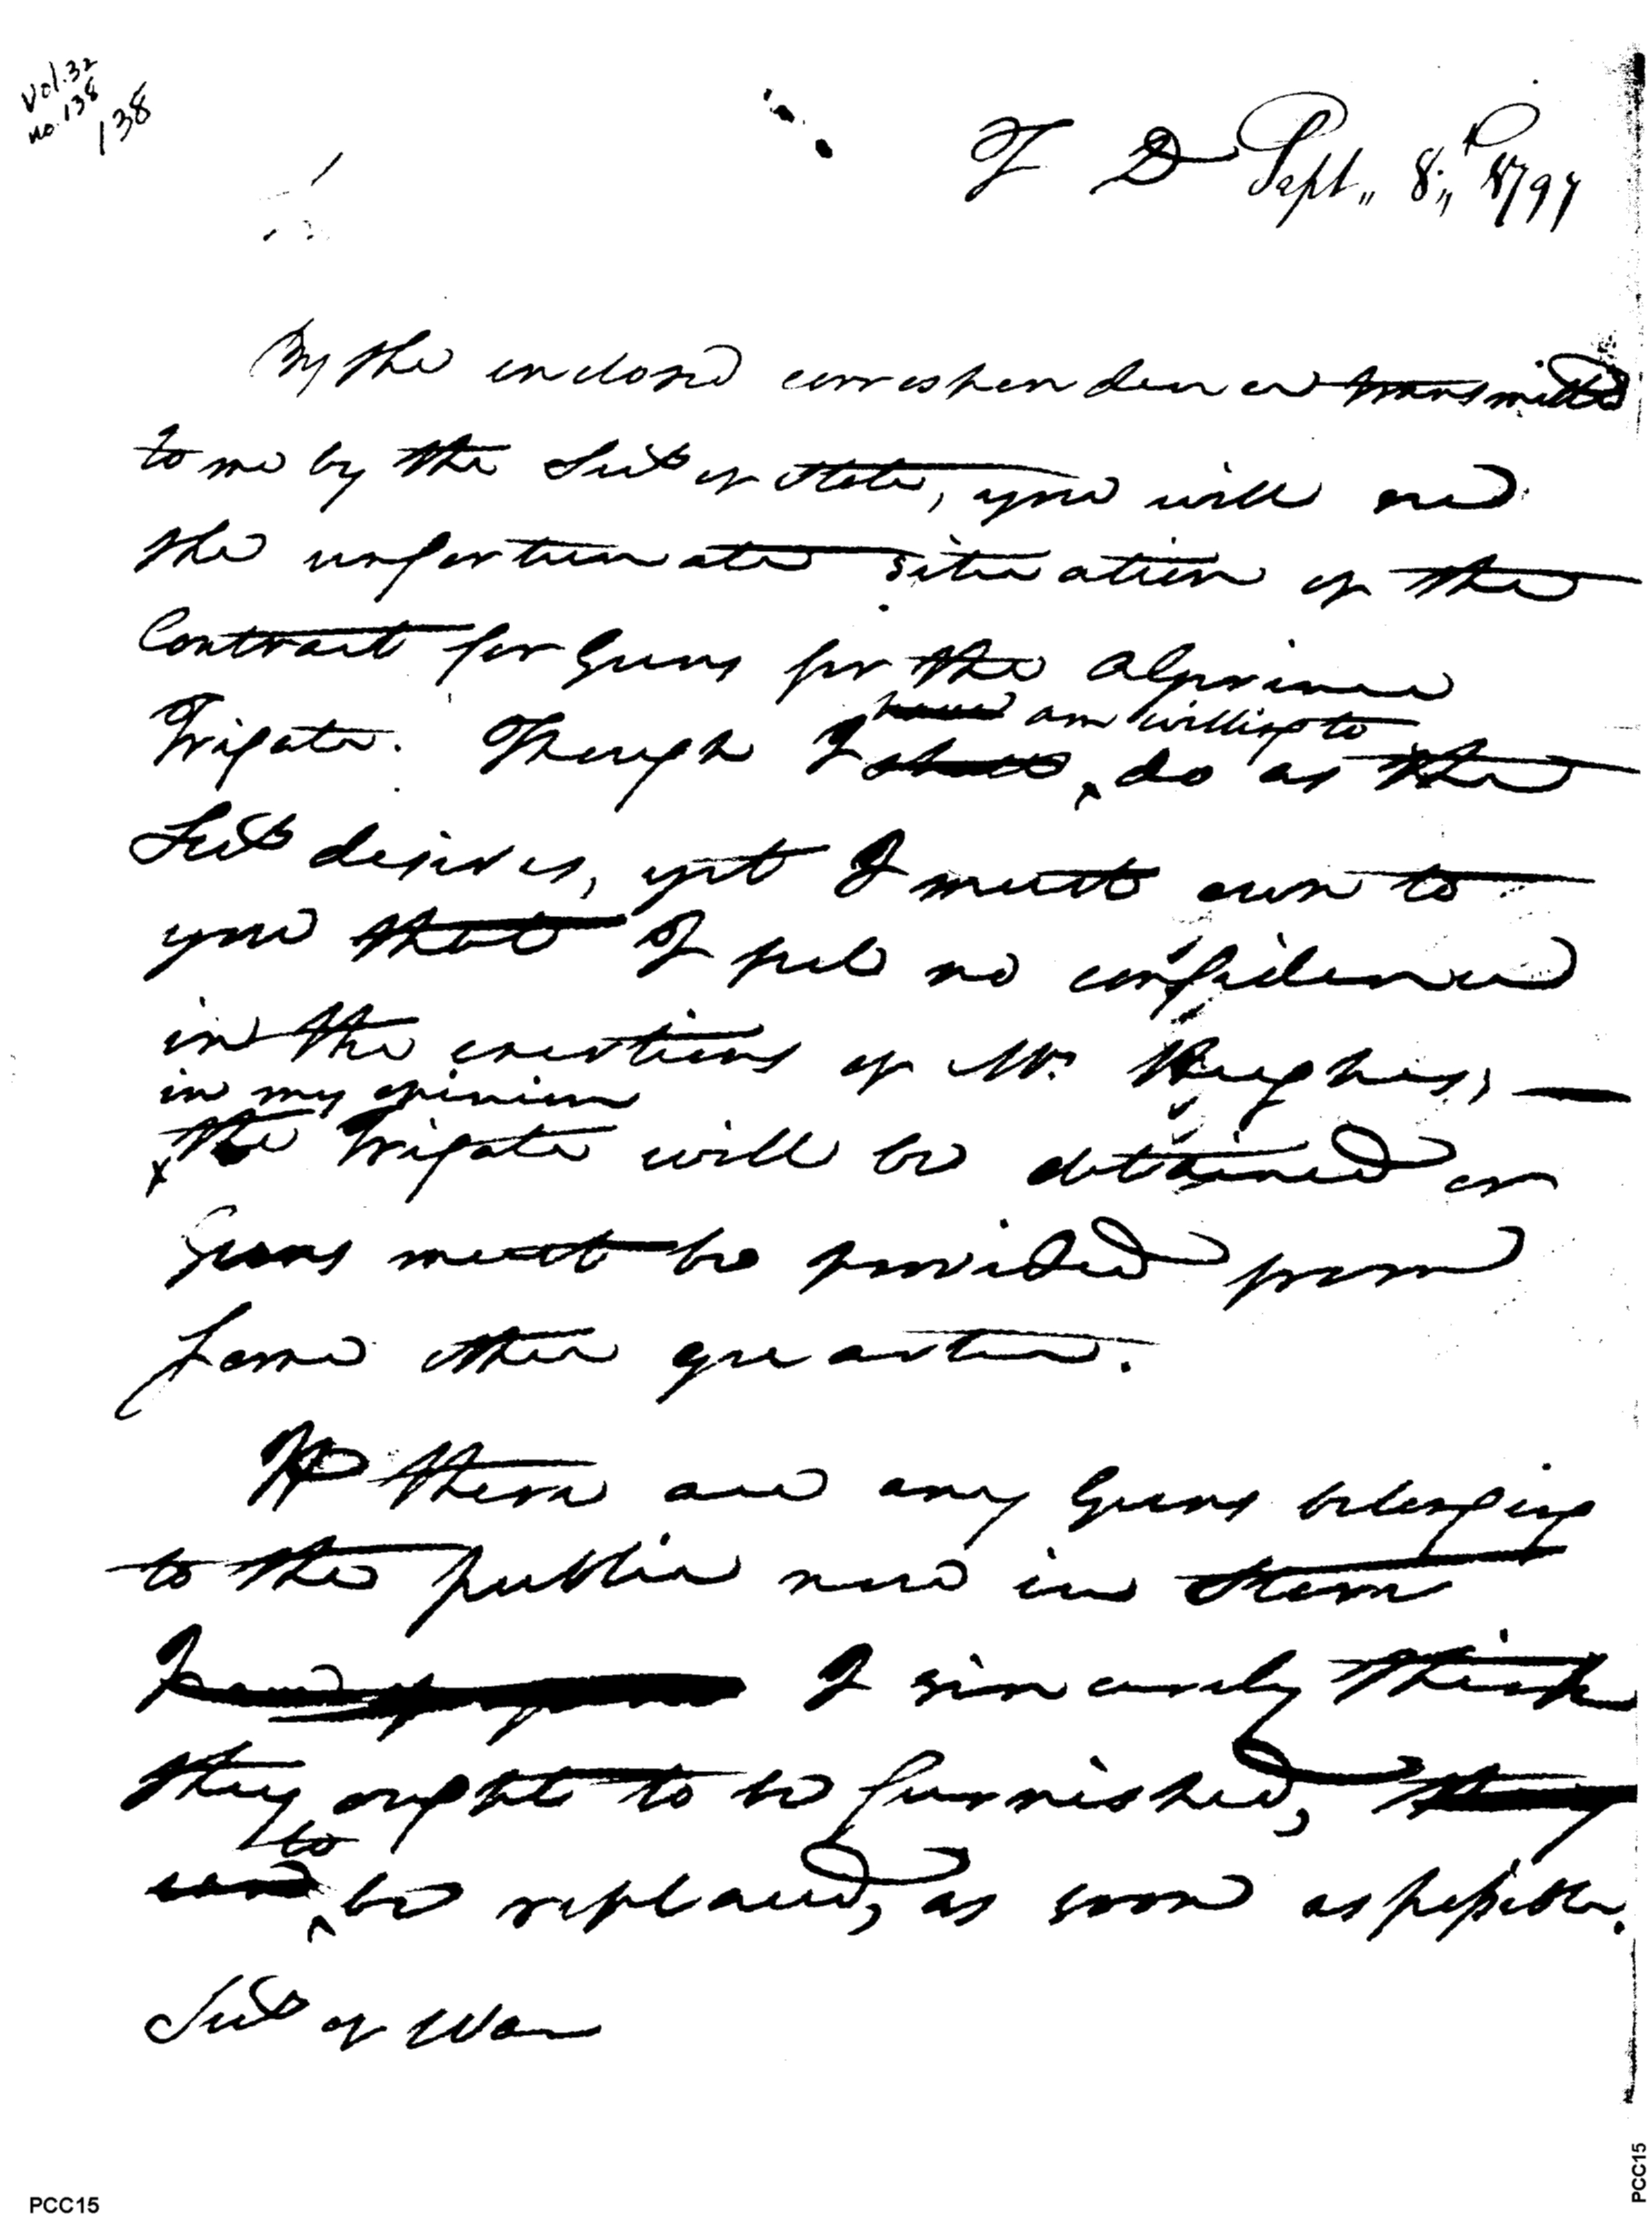 Vol. 32
no. 138
138
T D Sept., 8., 1797
By the inclosed correspondence transmitted
to me by the Secy of State, you will see
the unfortunate situation of the
Contract for Guns for the algerine
am willing to
Frigate. Though I shall do as the
Secy desires, yet I must own to
you that I feel no confidence
in the exertions of Mr. Hughes, —
in my opinion
the Frigate will be detained or
Guns must be provided from
some other quarter.
If there are any Guns belonging
to the public now in store
I sincerely think
they ought to be furnished, they
to
and be replaced, as soon as possible.
Secy of War
PCC15
PCC15